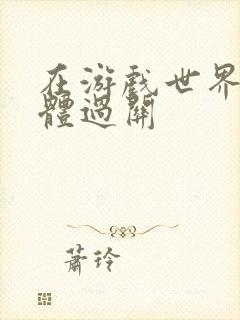 在游戲世界
體過關
蕭玲